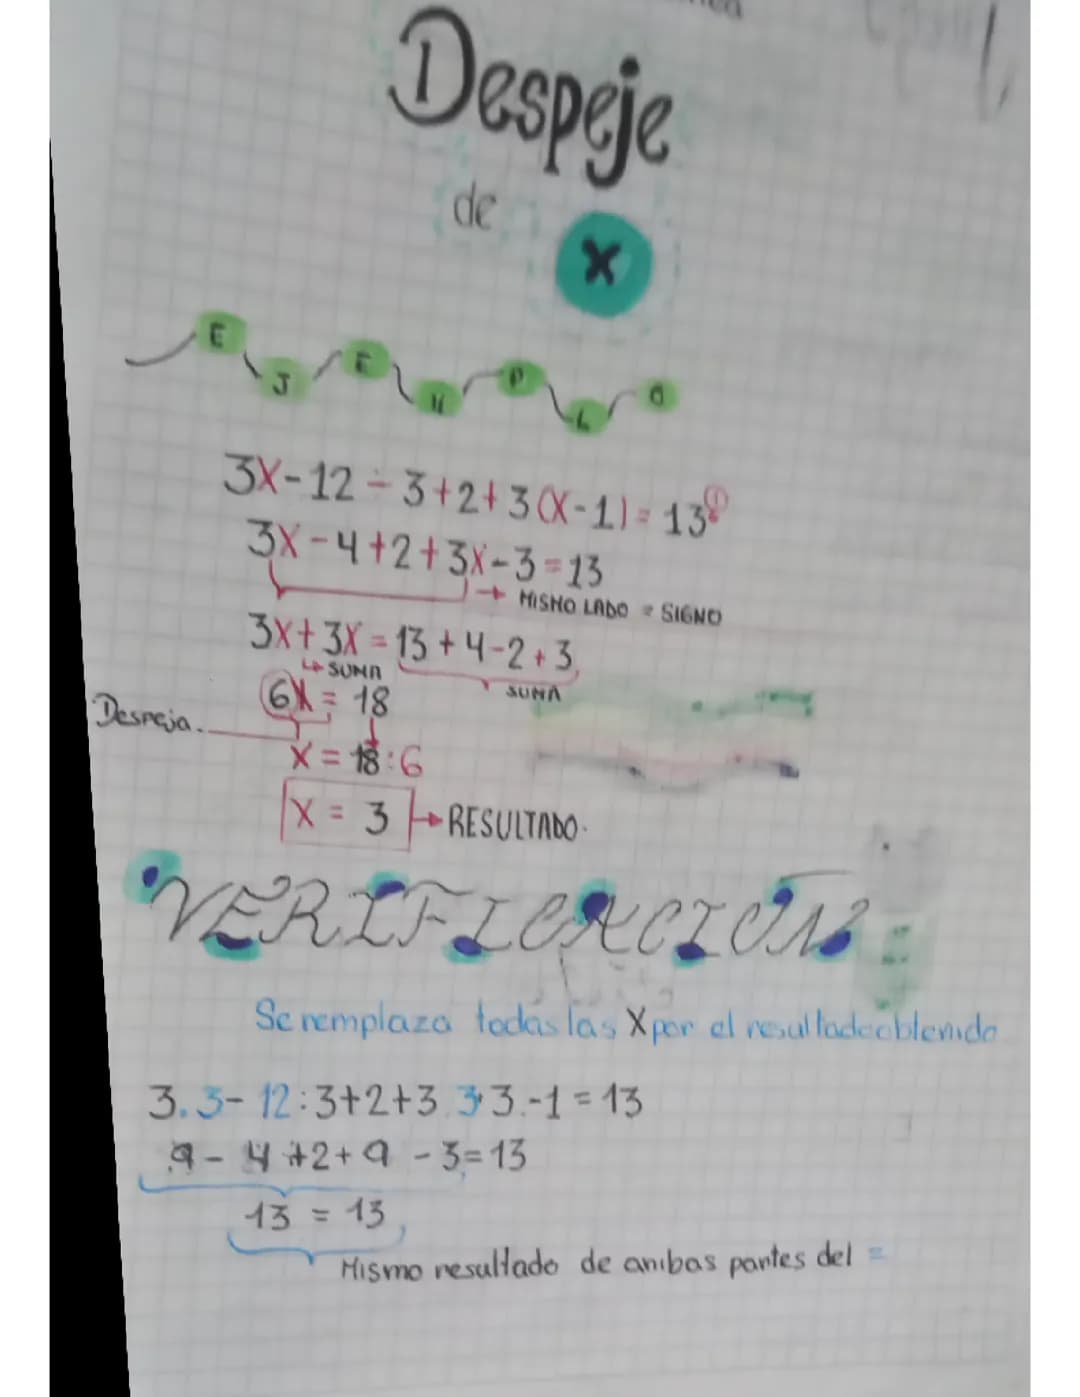 Despeje
de
X
EJEMPLO
3X-12÷3+2+3(X-1)=13
3X-4+2+3X-3=13
→ MISMO LADO = SIGNO
3X+3X=13+4-2+3
↳ SUMA
SUMA
6X=18
Despeja.
X=18:6
X=3 → RESULTADO.
VERIFICACIÓN
Se remplaza todas las X por el resultado obtenido
3.3-12:3+2+3.3·3.-1=13
9-4+2+9-3=13
13=13
Mismo resultado de ambas partes del =